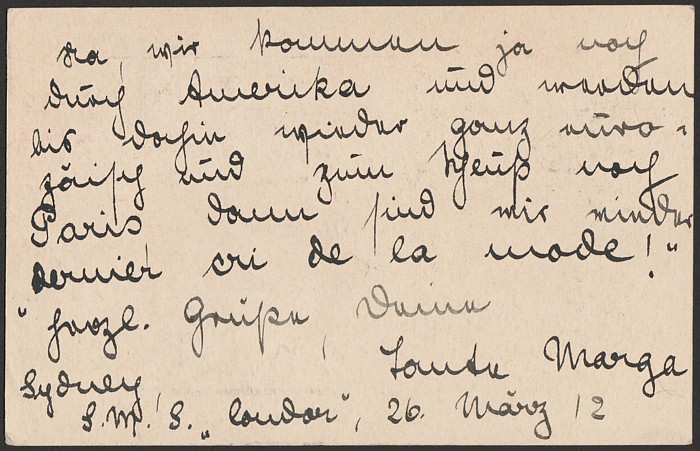 na, wir kommen ja noch
durch Amerika und werden
bis dahin wieder ganz euro-
päisch und zum Schluß noch
Paris, dann sind wir wieder
dernier cri de la mode!"
" herzl. Grüße, Deine
Tante Marga
Sydney,
S.M.S. „Condor", 26. März 12